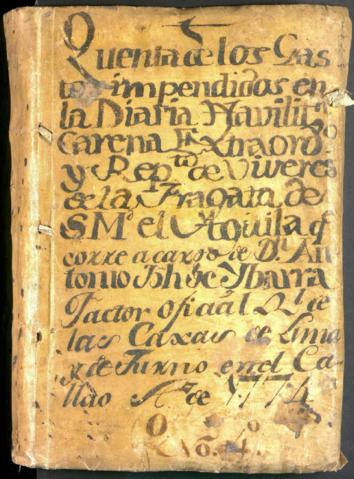 Quenta de los Gas
tos impendidos en
la Diaria Havilit.on
Carena Extraord.o
y Rep.to de Viveres
de la Fragata de
S.M. el Aguila q.e
corre a cargo de D.n An
tonio Jph de Ybarra
Factor Oficial R.l de
las Caxas de Lima
y de Turno en el Ca
llao de 1774
No. 4.